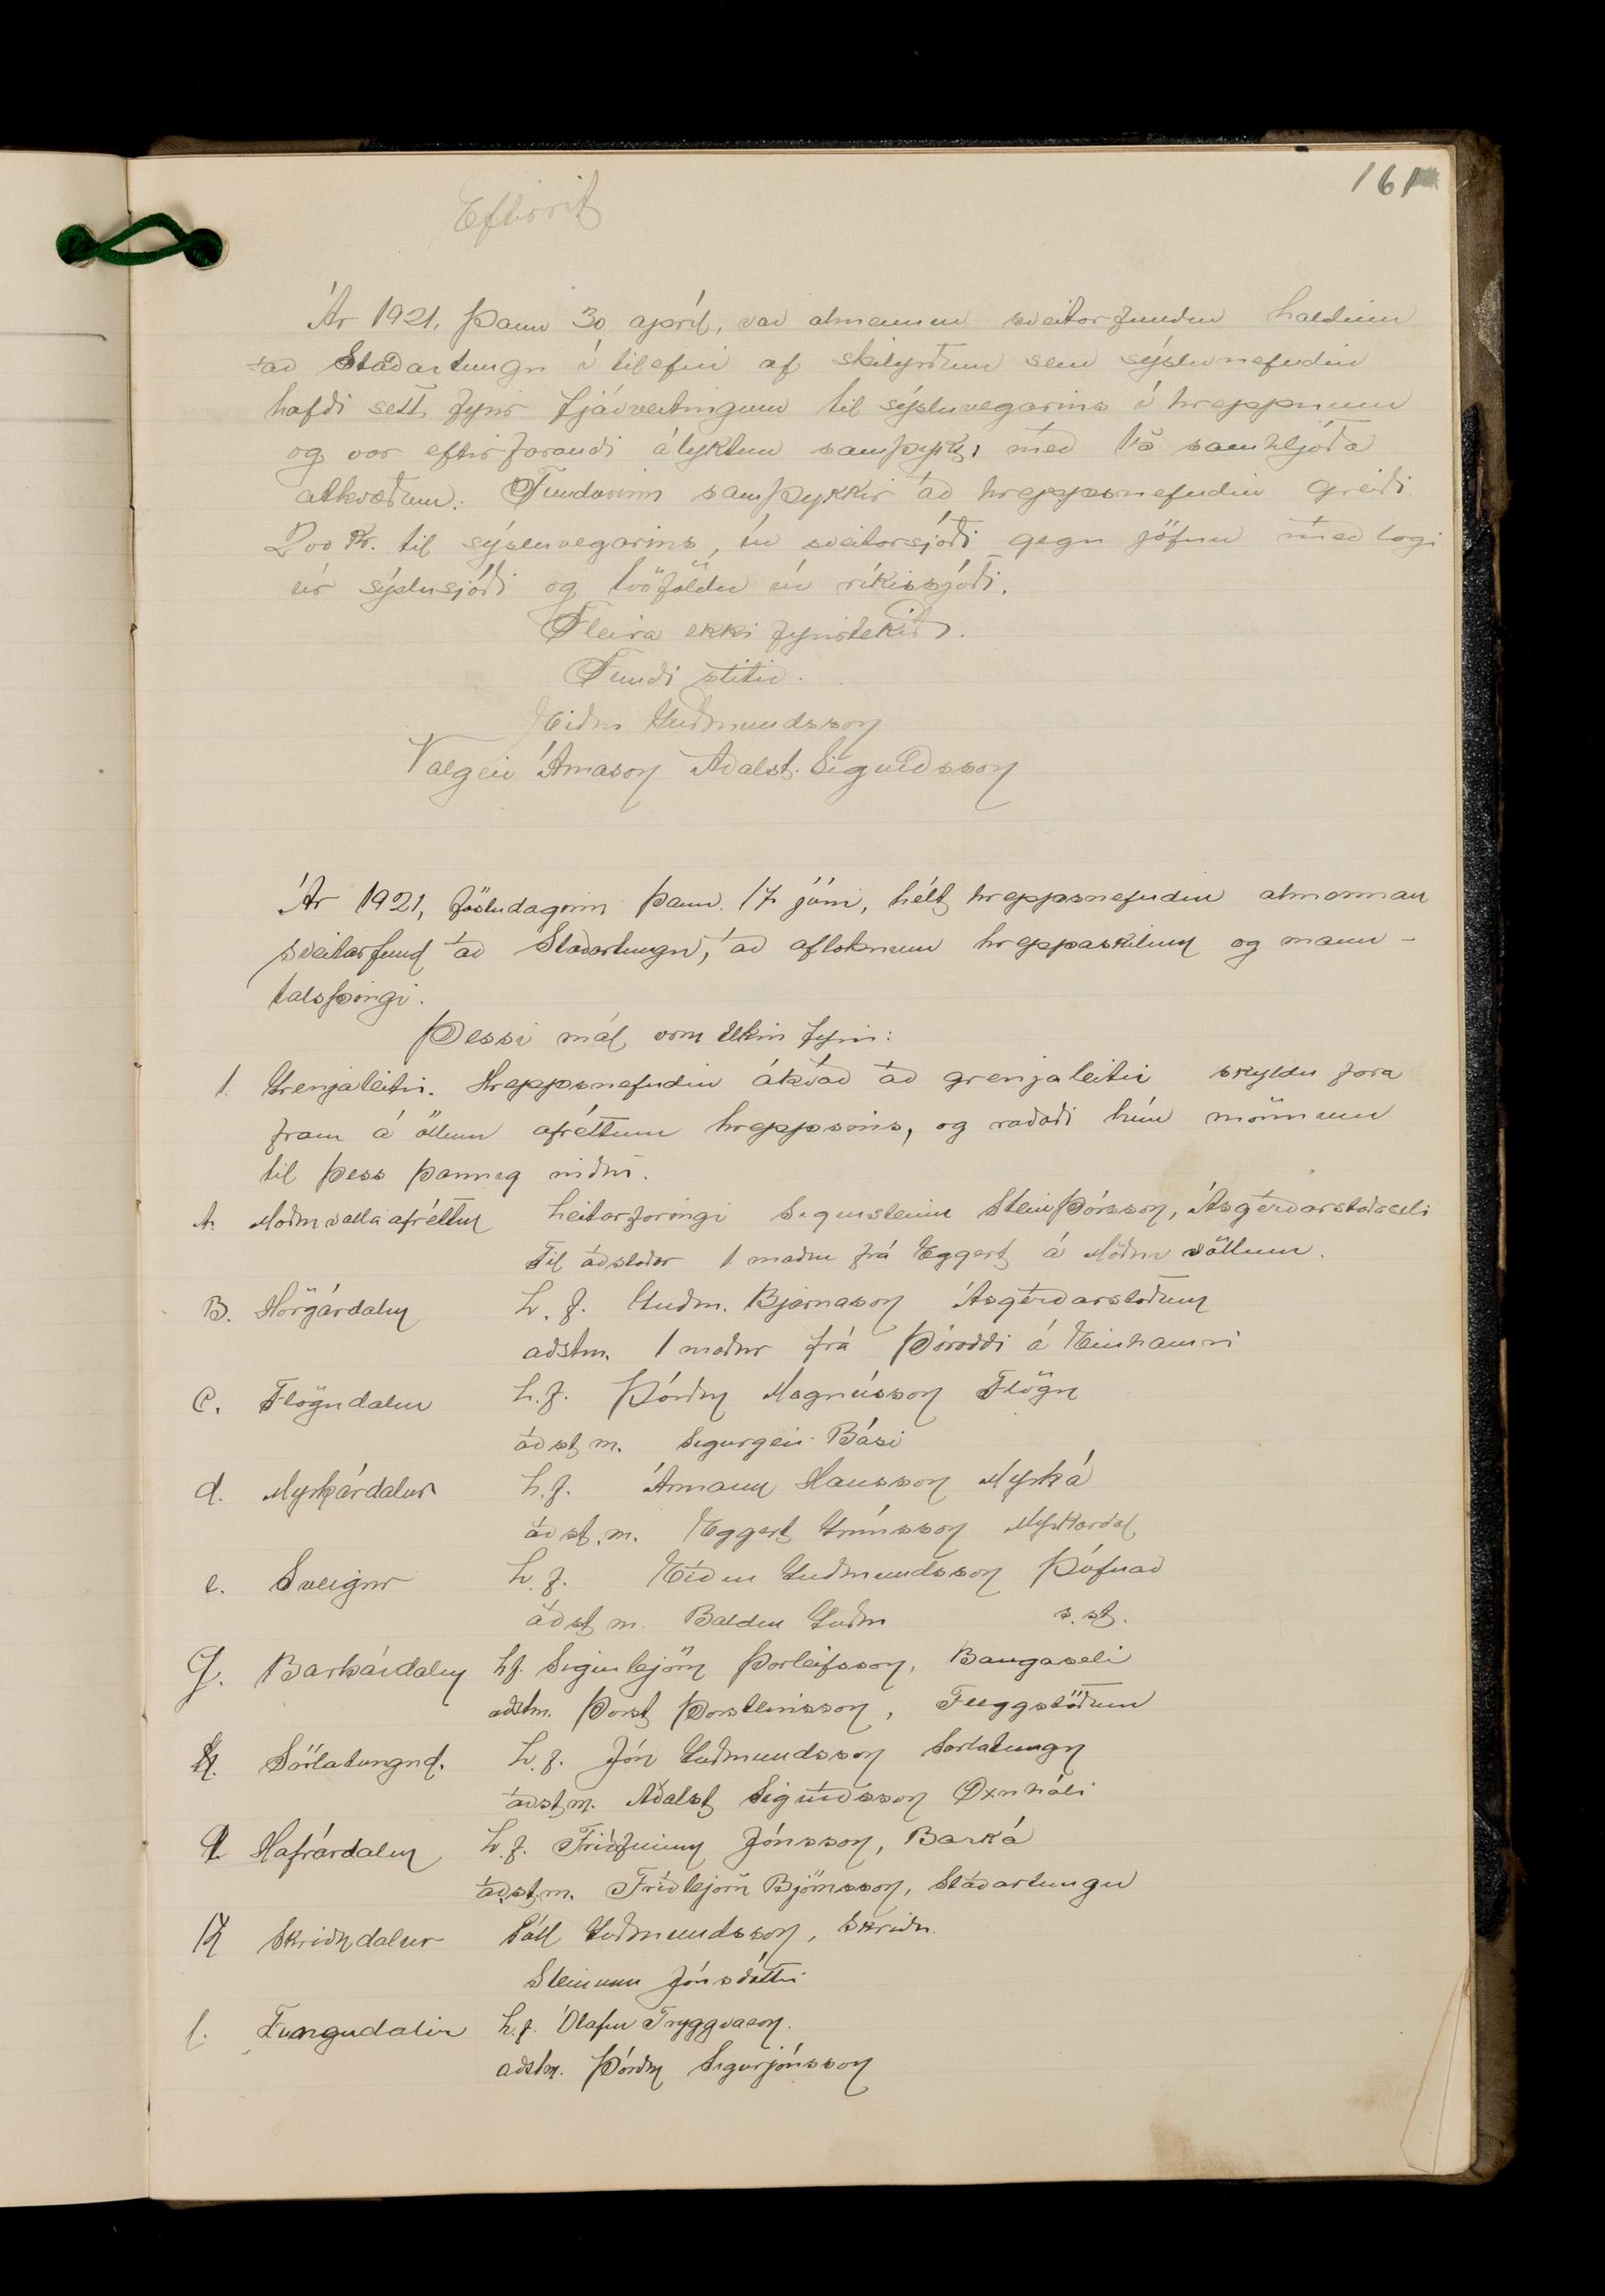 161
Eftirrit
Ár 1921, þann 30 apríl, var almennur sveitarfundur haldinn
að Staðartungu í tilefni af skilyrðum sem sýslunefndin
hafði sett fyrir fjárveitingum til sýsluvegarins í hreppnum
og var eftirfarandi ályktun samþykt með samhljóða
atkvæðum. Fundurinn samþykkir að hreppsnefndin greiði
200 kr. til sýsluvegarins, úr sveitarsjóði gegn jöfnu með lagi
úr sýslusjóði og tvöföldu úr ríkissjóði.
Fleira ekki fyrirtekið.
Fundi slitið.
Eiður Guðmundsson
Valgeir Árnason Aðalst. Sigurðsson
Ár 1921, föstudaginn þann 17 júni, hélt hreppsnefndin almennan
sveitarfund að Staðartungu, að afloknum hreppaskilum og mann-
talsþingi.
Þessi mál vóru tekin fyrir:
1. Grenjaleitir. Hreppsnefndin ákvað að grenjaleitir skyldu fara
fram á öllum afréttum hreppsins, og raðaði hún mönnum
til þess þannig niður.
A. Möðruvallaafréttur Leitarforingi Sigursteinn Steinþórsson, Ásgerðarstaðaseli
Til aðstoðar 1 maður frá Eggert á Möðruvöllum.
B. Hörgárdalur L. f. Guðm. Bjarnason Ásgerðarstöðum
aðstm. 1 maður frá Þóroddi á Einhamri
C. Flögudalur L. f. Þórður Magnússon Flögu
aðst m. Sigurgeir Bási
d. Myrkárdalur L. f. Ármann Hansson Myrká
aðst. m. Eggert Grímsson Myrkárdal
e. Sveigur L. f. Eiður Guðmundsson Þúfnav
aðst m. Baldur Guðm s. st.
f. Barkárdalur L f. Sigurbjörn Þorleifsson, Baugaseli
aðstm. Þorst Þorsteinsson, Fleggstöðum
Sörlatungud. L. f. Jón Guðmundsson Sörlatungu
aðstm. Aðalst Sigurðsson Öxnhóli
Hafrárdalur L. f. Friðfinnur Jónsson, Barká
aðst.m. Friðbjörn Björnsson, Staðartungu
K Skriðudalur Páll Guðmundsson, Skriðu.
Steinunn Jónsdóttir
l. Tungudalir L. f. Ólafur Tryggvason.
aðstm. Þórður Sigurjónsson